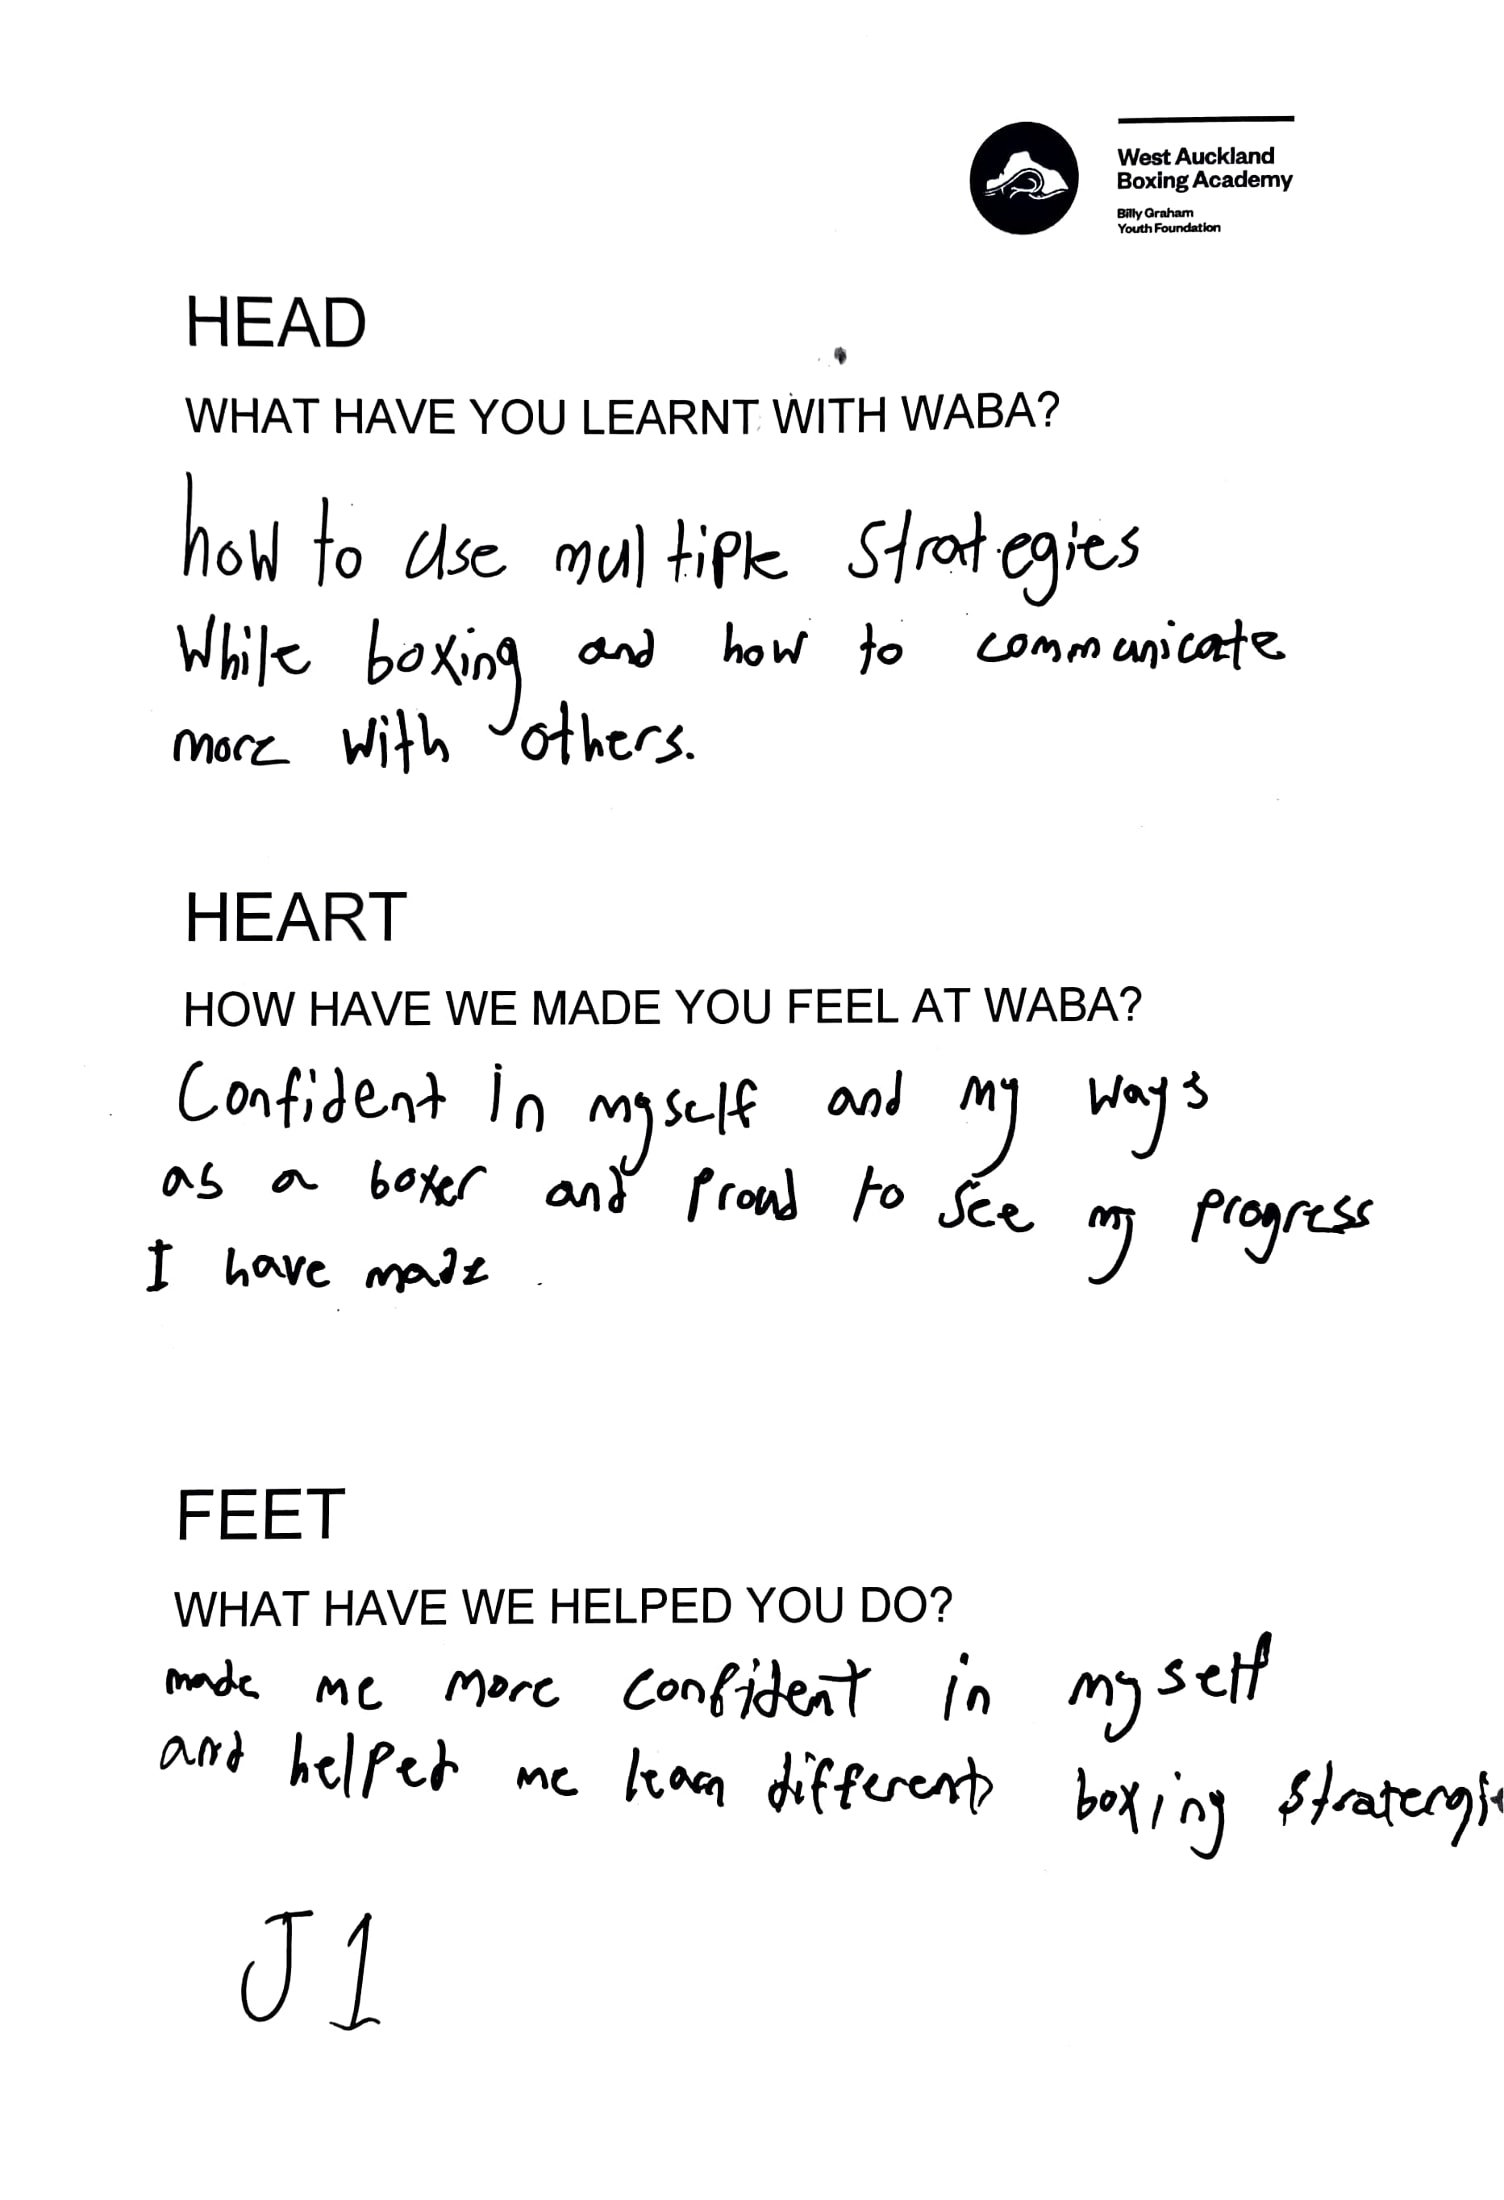 West Auckland
Boxing Academy
Billy Graham
Youth Foundation
HEAD
WHAT HAVE YOU LEARNT WITH WABA?
how to use multiple strategies
While boxing and how to communicate
more with others.
HEART
HOW HAVE WE MADE YOU FEEL AT WABA?
Confident in myself and my ways
as a boxer and proud to see my progress
I have made
FEET
WHAT HAVE WE HELPED YOU DO?
made me more confident in myself
and helped me learn different boxing
J1